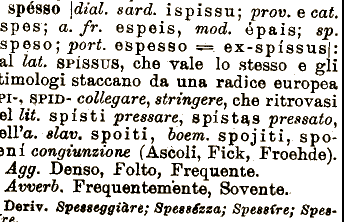 spésso [dial. sard. ispissu; prov. e cat.
spes; a. fr. espeis, mod. épais; sp.
speso; port. espesso = ex-spíssus]:
al lat. SPÍSSUS, che vale lo stesso e gli
timologi staccano da una radice europea
PI-, SPID- collegare, stringere, che ritrovasi
el lit. spísti pressare, spístas pressato,
ell'a. slav. spoiti, boem. spojiti, spo-
ení congiunzione (Ascoli, Fick, Froehde).
Agg. Denso, Folto, Frequente.
Avverb. Frequentemente, Sovente.
Deriv. Spesseggiàre; Spessézza; Spessíre; Spes-
íre.